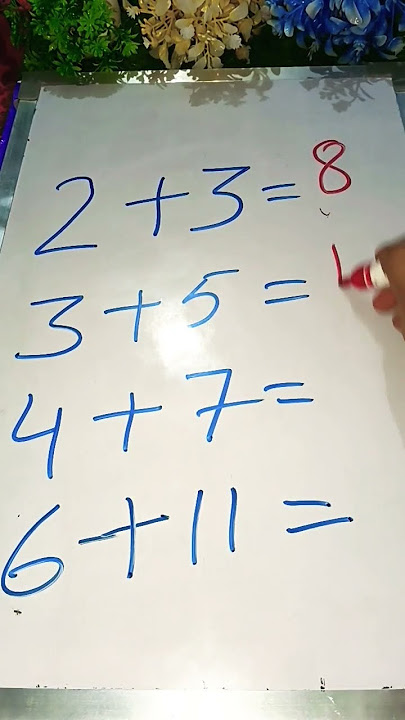 2 + 3 = 8
3 + 5 =
4 + 7 =
6 + 11 =